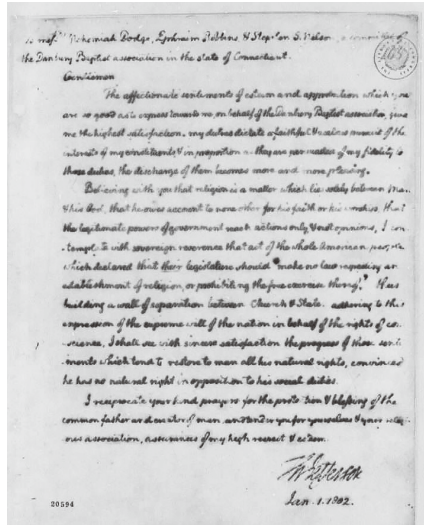 To mess.rs Nehemiah Dodge, Ephraim Robbins & Stephen S. Nelson, a committee of
the Danbury Baptist association in the state of Connecticut.
Gentlemen
The affectionate sentiments of esteem and approbation which you
are so good as to express towards me, on behalf of the Danbury Baptist association, give
me the highest satisfaction. my duties dictate a faithful & zealous pursuit of the
interests of my constituents, & in proportion as they are persuaded of my fidelity to
those duties, the discharge of them becomes more and more pleasing.
Believing with you that religion is a matter which lies solely between Man
& his God, that he owes account to none other for his faith or his worship, that
the legitimate powers of government reach actions only, & not opinions, I con-
template with sovereign reverence that act of the whole American people
which declared that their legislature should "make no law respecting an
establishment of religion, or prohibiting the free exercise thereof," thus
building a wall of separation between Church & State. adhering to this
expression of the supreme will of the nation in behalf of the rights of con-
science, I shall see with sincere satisfaction the progress of those senti-
ments which tend to restore to man all his natural rights, convinced
he has no natural right in opposition to his social duties.
I reciprocate your kind prayers for the protection & blessing of the
common father and creator of man, and tender you for yourselves & your religi-
ous association, assurances of my high respect & esteem.
Th Jefferson
Jan. 1. 1802.
20594